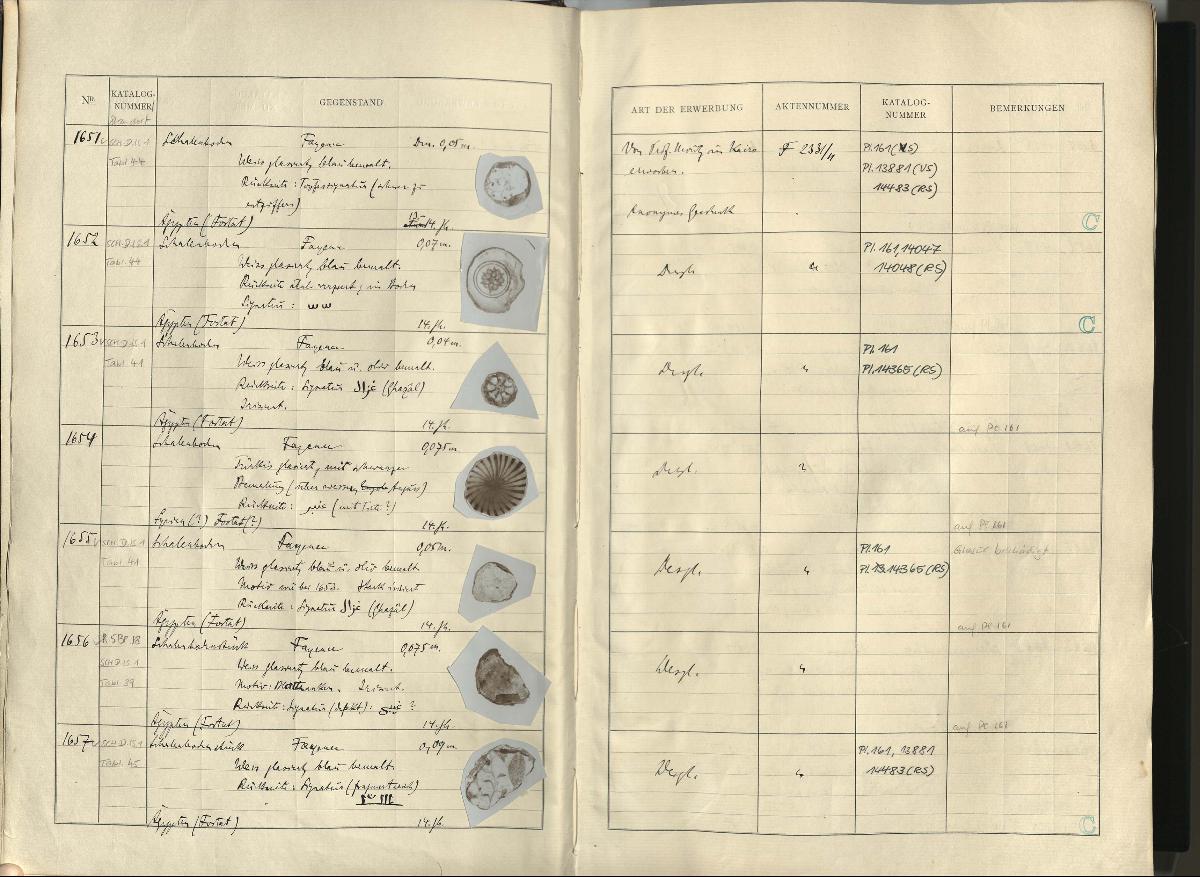 Nr.
KATALOG-
NUMMER
GEGENSTAND
1651
SCH.D.IS 1
Tabl. 44
Schalenboden Fayence Dm. 0,05 m.
Weiss glasiert, blau bemalt.
Rückseite: Topfersignatur (schwer zu
entziffern)
Ägypten (Fostat) 14. Jh.
1652
SCH.D.IS 1
Tabl. 44
Schalenboden Fayence 0,07 m.
Weiss glasiert, blau bemalt.
Signatur:
Ägypten (Fostat) 14. Jh.
1653
SCH.D.IS 1
Tabl. 41
Schalenboden Fayence 0,04 m.
Weiss glasiert, blau u. oliv bemalt.
Rückseite: Signatur (Ghazâl)
Irisiert.
Ägypten (Fostat) 14. Jh.
1654
Schalenboden Fayence 0,075 m.
Türkis glasiert, mit schwarzer
Bemalung
Rückseite:
Syrien (?) Fostat (?) 14. Jh.
1655
SCH.D.IS 1
Tabl. 41
Schalenboden Fayence 0,05 m.
Weiss glasiert, blau u. oliv bemalt.
Motiv wie bei 1653. Stark irisiert
Rückseite: Signatur (Ghazâl)
Ägypten (Fostat) 14. Jh.
1656
SCH.D.IS 1
Tabl. 39
Schalenbodenstück Fayence 0,075 m.
Weiss glasiert, blau bemalt.
Motiv: Irisiert.
Rückseite: Signatur (defekt): ?
Ägypten (Fostat) 14. Jh.
1657
SCH.D.IS 1
Tabl. 45
Schalenbodenstück Fayence 0,09 m.
Weiss glasiert, blau bemalt.
Rückseite: Signatur (fragmentarisch)
Ägypten (Fostat) 14. Jh.
ART DER ERWERBUNG
AKTENNUMMER
KATALOG-
NUMMER
BEMERKUNGEN
Von Prof. Moritz in Kairo
erworben.
Anonymes Geschenk
Pl. 161 (VS)
Pl. 13881 (VS)
14483 (RS)
C
Desgl.
"
Pl. 161, 14047
14048 (RS)
C
Desgl.
"
Pl. 161
Pl. 14365 (RS)
auf Pl. 161
Desgl.
auf Pl. 161
Desgl.
"
Pl. 161
Pl. 14365 (RS)
Glasur beschädigt
auf Pl. 161
Desgl.
"
auf Pl. 161
Desgl.
"
Pl. 161, 13881
14483 (RS)
C